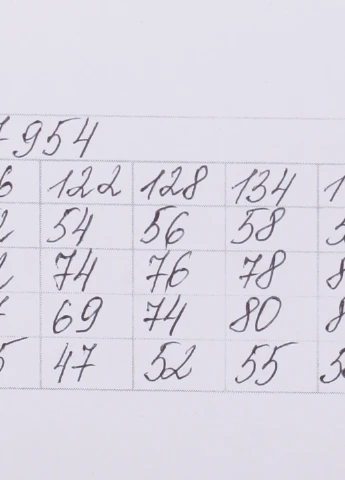 954
122 128 134
54 56 58
74 76 78
69 74 80
47 52 55